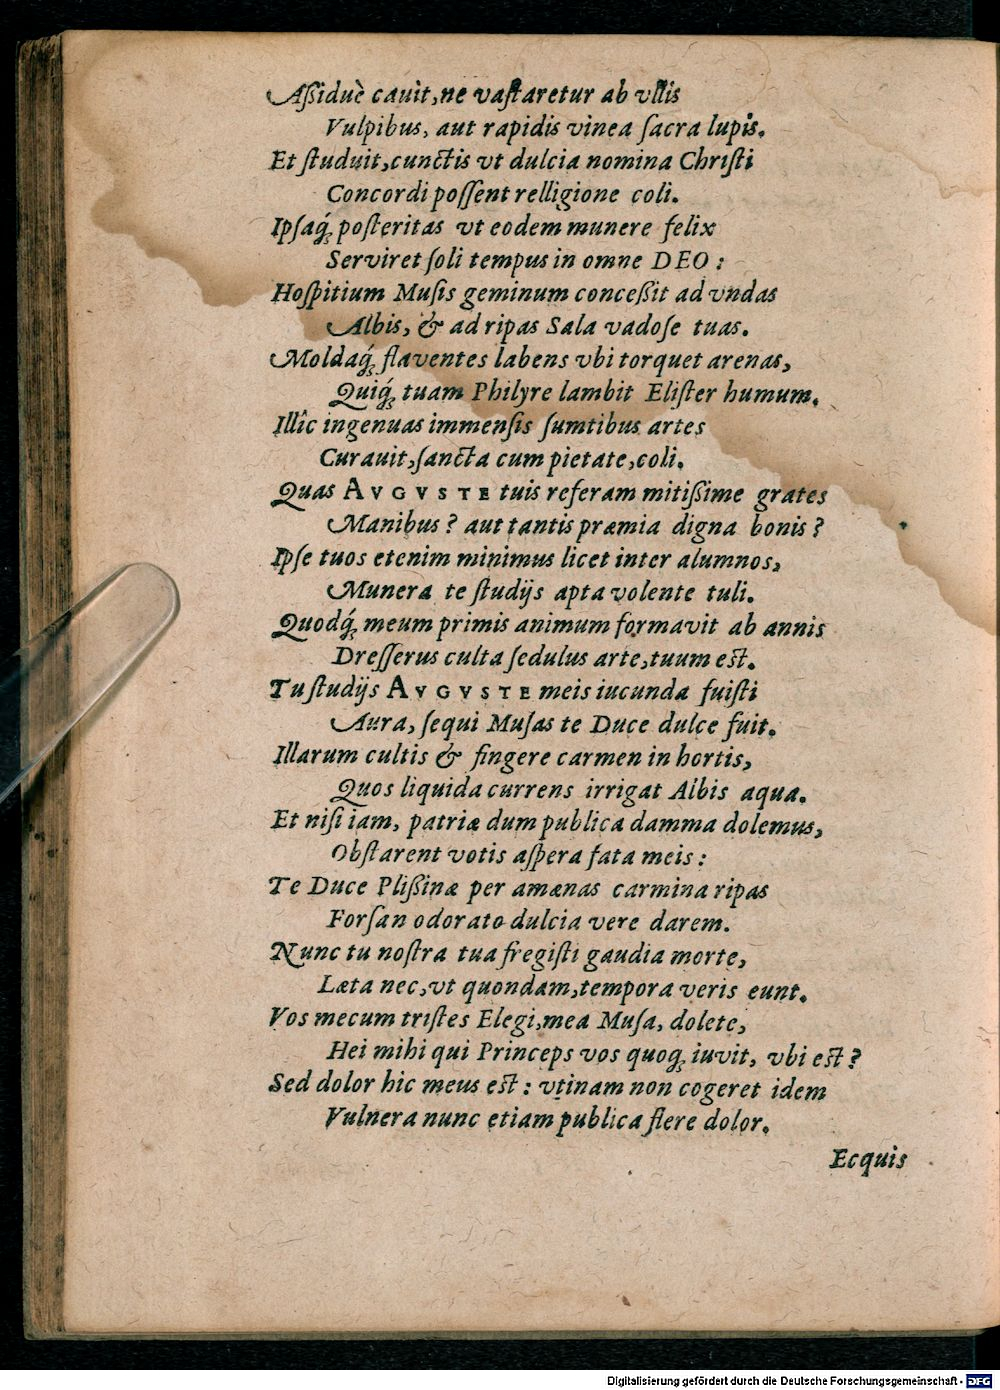 Aſſiduè cauìt, ne vaſtaretur ab vllis
Vulpibus, aut rapidis vinea ſacra lupis.
Et ſtuduit, cunctis vt dulcia nomina Chriſti
Concordi poſſent relligione coli.
Ipſaq́; poſteritas vt eodem munere felix
Serviret ſoli tempus in omne DEO:
Hoſpitium Muſis geminum conceßit ad vndas
Albis, & ad ripas Sala vadoſe tuas.
Moldaq́; flaventes labens vbi torquet arenas,
Quiq́; tuam Philyre lambit Eliſter humum.
Illîc ingenuas immenſis ſumtibus artes
Curauit, ſancta cum pietate, coli.
Quas AVGVSTE tuis referam mitißime grates
Manibus? aut tantis præmia digna bonis?
Ipſe tuos etenim minimus licet inter alumnos,
Munera te ſtudijs apta volente tuli.
Quodq́; meum primis animum formavit ab annis
Dreſſerus culta ſedulus arte, tuum eſt.
Tu ſtudijs AVGVSTE meis iucunda fuiſti
Aura, ſequi Muſas te Duce dulce fuit.
Illarum cultis & fingere carmen in hortis,
Quos liquida currens irrigat Albis aqua.
Et niſi iam, patriæ dum publica damma dolemus,
Obſtarent votis aſpera fata meis:
Te Duce Plißinæ per amænas carmina ripas
Forſan odorato dulcia vere darem.
Nunc tu noſtra tua fregiſti gaudia morte,
Læta nec, vt quondam, tempora veris eunt.
Vos mecum triſtes Elegi, mea Muſa, dolete,
Hei mihi qui Princeps vos quoq; iuvit, vbi eſt?
Sed dolor hic meus eſt: vtinam non cogeret idem
Vulnera nunc etiam publica flere dolor.
Ecquis
Digitalisierung gefördert durch die Deutsche Forschungsgemeinschaft - DFG